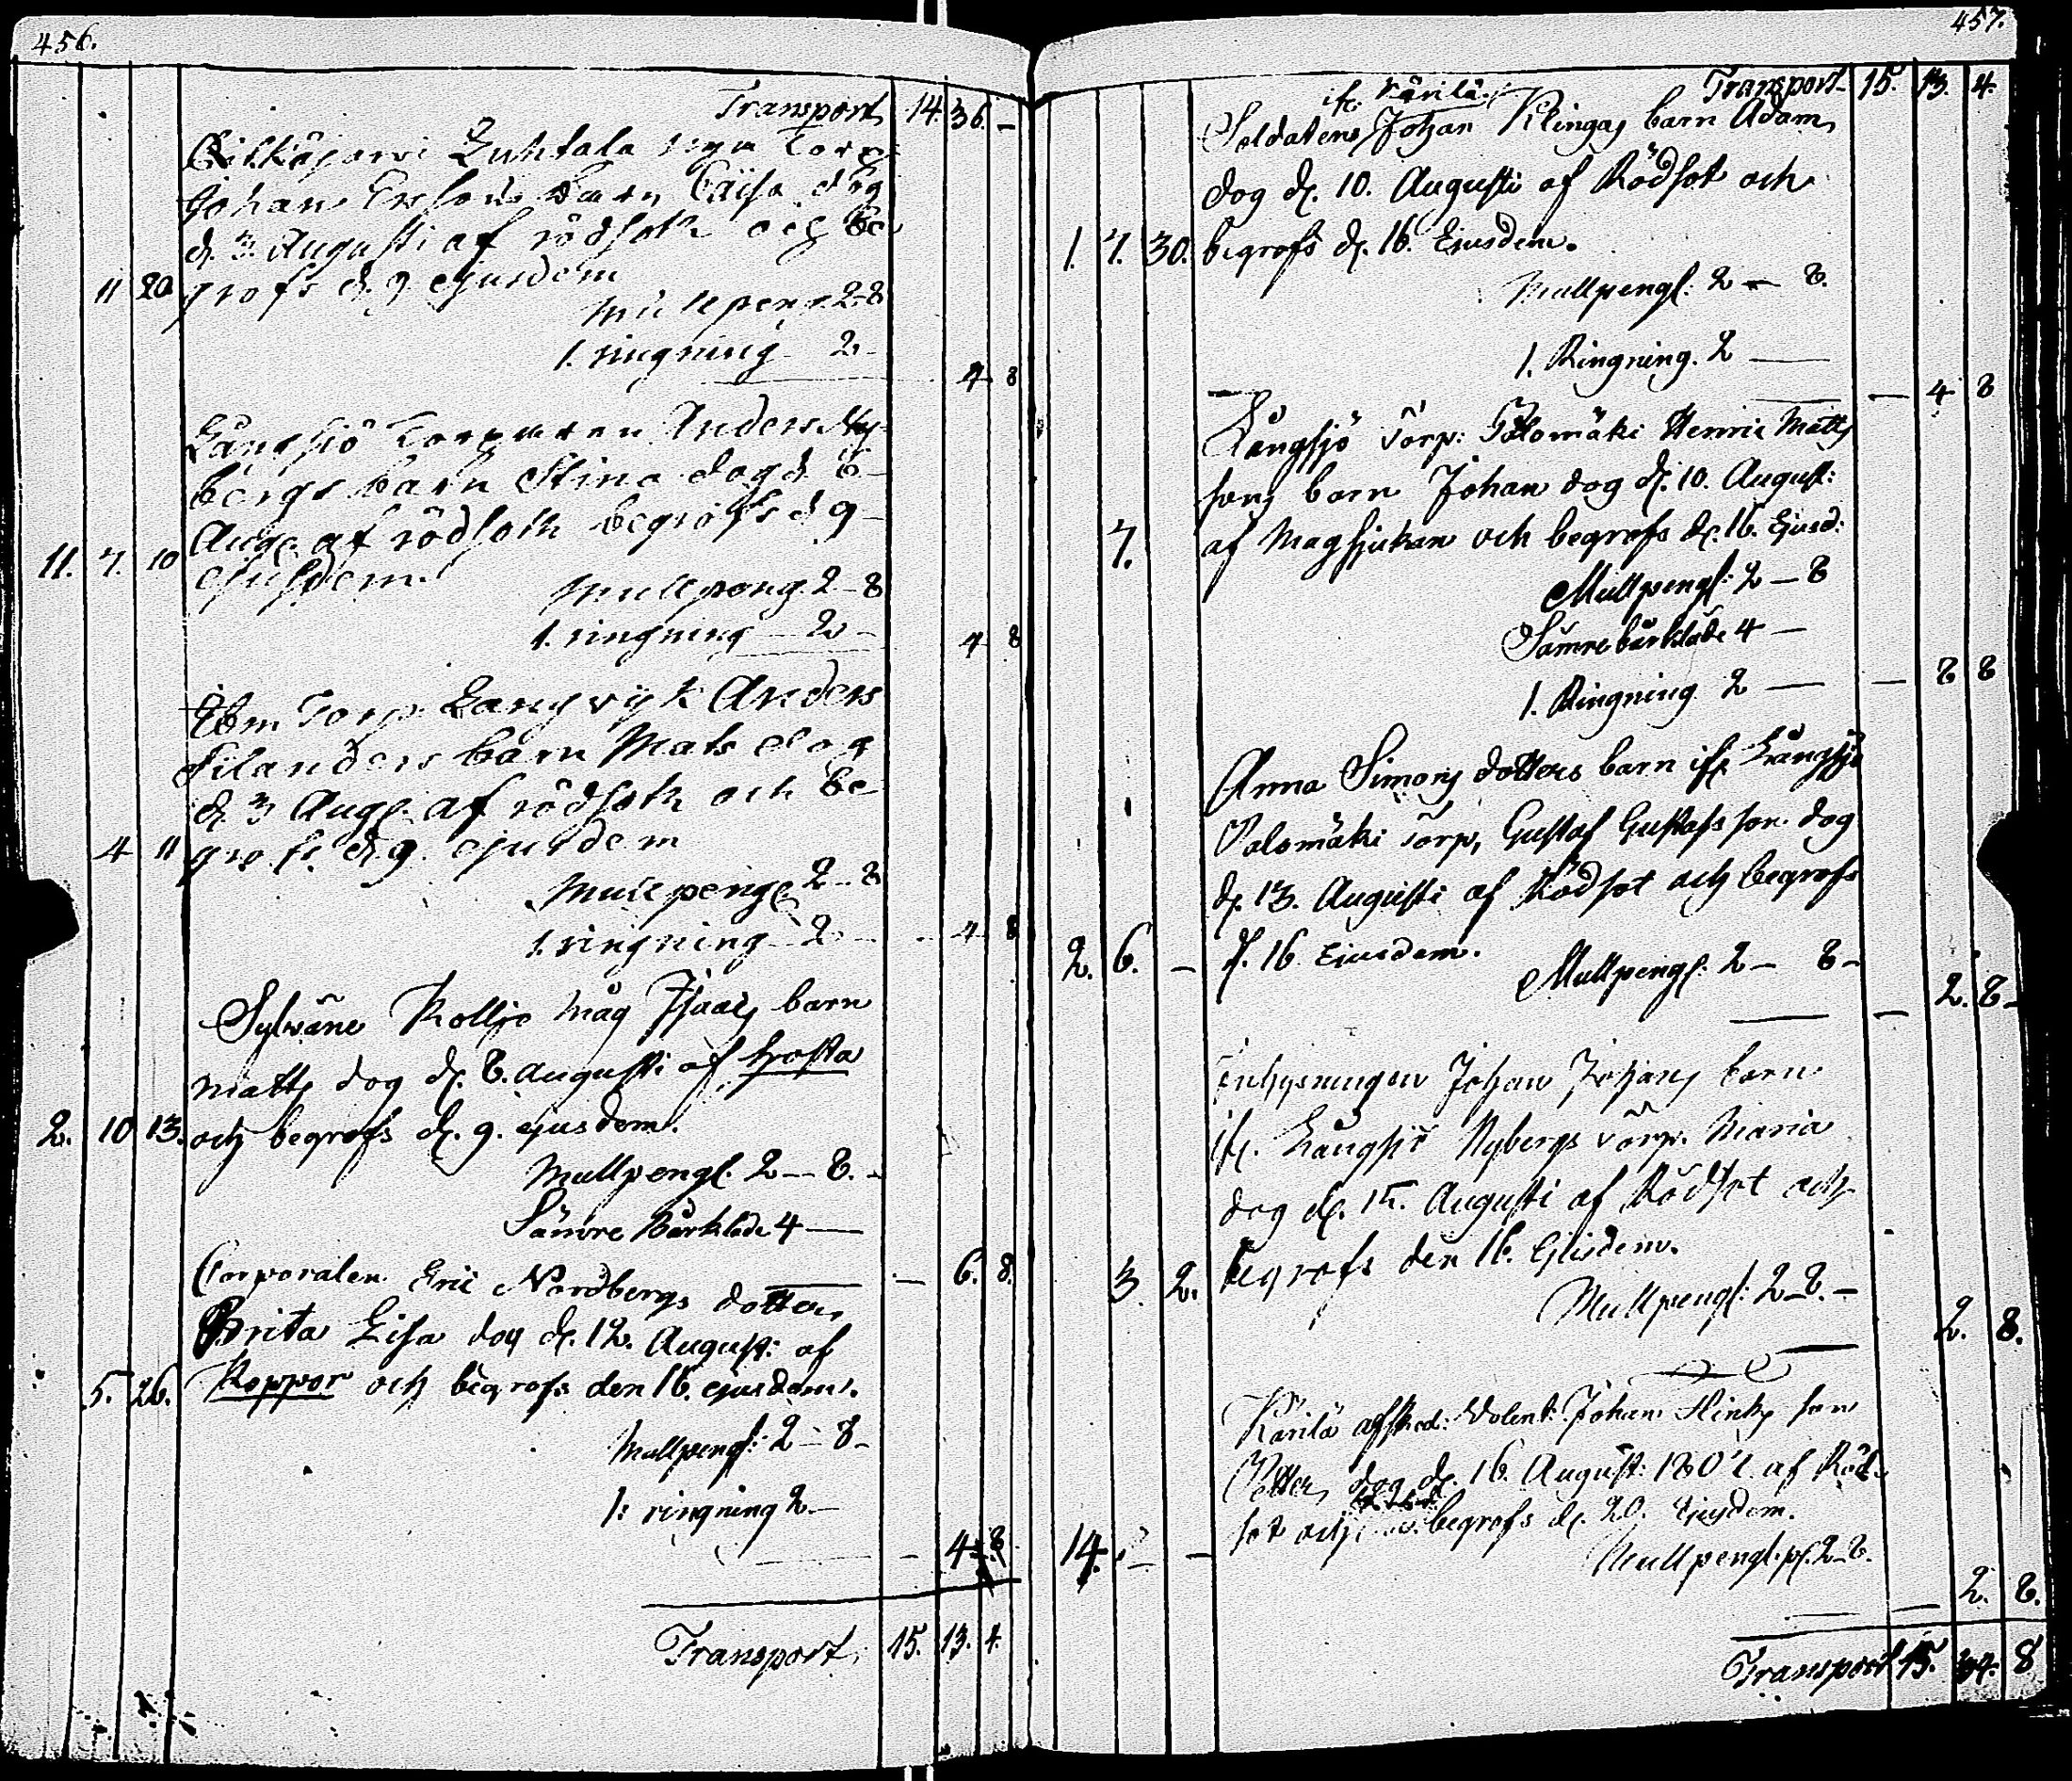 456.
Transport 14. 36. –
Pitkäjärvi Luhtala nya Torp
Johan Ersons barn Caisa dog
d. 3. Augusti af rödsoth och be
11 20 grofs d. 9 ejusdem
Mullpeng. 2-8
1. ringning 2-
4 8
Långsjö Torparen Anders Ny-
bergs barn Stina dog d. 6
Aug. af rödsoth begrofs d 9
11. 7. 10 ejusdem.
Mullpeng. 2-8
1. ringning 2-
4 8
Torp Långvijk Anders
Filanders barn Mats dog
d. 3 Aug. af rödsoth och be
4 11 grofs d. 9. ejusdem
Mullpeng. 2-8
1. ringning 2-
4 8
Sylväne Rolljo måg Isaacs barn
Matts dog d. 8. Augusti af hrosta
2. 10 13. och begrofs d. 9. ejusdem.
Mullpengl. 2-8.-
Sämre Bårkläde 4 —
— 6. 8.
Corporalen Eric Nordbergs dotter,
Brita Lisa dog d. 12. August: af
5. 26. Koppor och begrofs den 16. ejusdem.
Mullpengl: 2-8-
1: ringning 2-
– 4. 8
Transport, 15. 13. 4.
457.
Transport 15. 13. 4.
ifr. Kärilä
Soldatens Johan Klingas barn Adam,
dog d. 10. Augusti af Rödsot och
1. 7. 30. begrofs d. 16. Ejusdem.
Mullpengl: 2 — 8.
1. Ringning. 2 —
— 4 8
Långsjö Torp: Palomäki Henric Matts
sons barn Johan dog d. 10. August:
7. af Magsjukan och begrofs d. 16. Ejusd:
Mullpengl: 2 — 8
Sämre bårkläde 4 —
1. Ringning 2 —
— 8 8
Anna Simons dotters barn ifr. Långsjö
Palomäki Torp, Gustaf Gustafs son dog
d. 13. Augusti af Rödsot och begrofs
2. 6. – d. 16 Ejusdem.
Mullpengl: 2 — 8 –
— 2. 8 –
Inhysningen Johan Johans barn
ifr. Långsjö Nybergs Torp. Maria
dog d. 15. Augusti af Rödsot och
3. 2. begrofs den 16. Ejusdem.
Mullpengl: 2-8.-
2. 8.
Kärilä afsked: Volent: Johan Flinks son
Petter, dog d. 16. August: 1807. af Röd-
14. – – sot och begrofs d. 20. Ejusdem.
Mullpengl. 2-8.
— 2. 8.
Transport 15. 34. 8